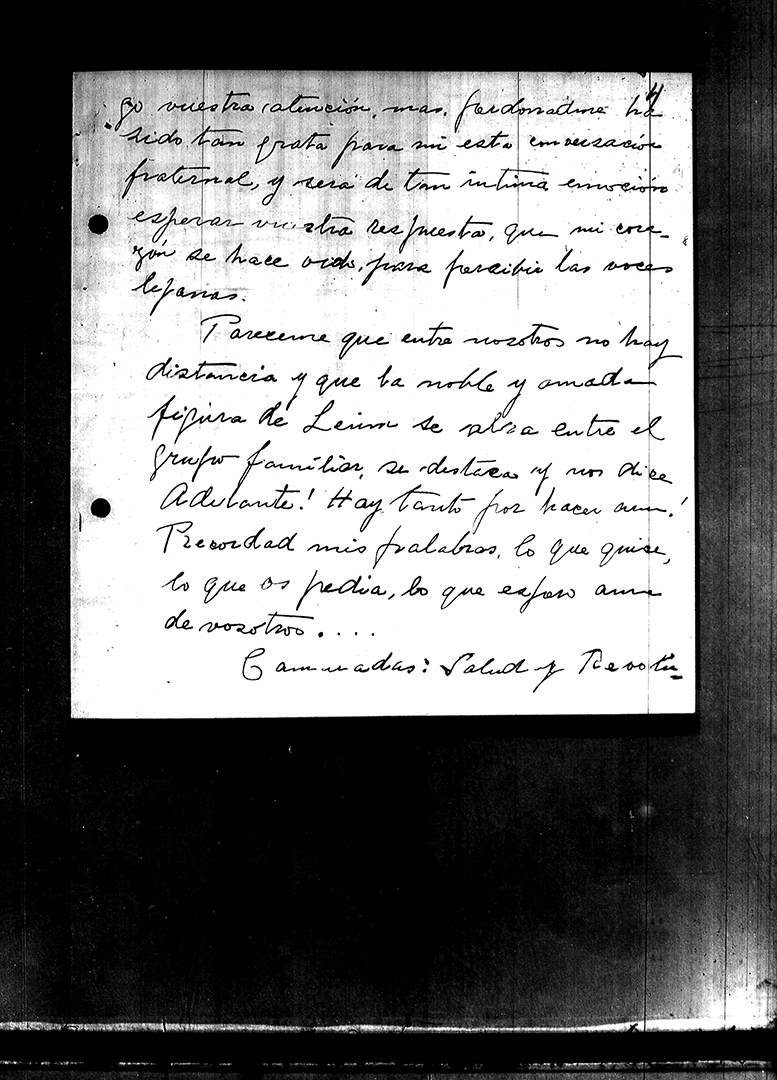 4
go vuestra atención, mas, perdonadme ha
sido tan grata para mi esta conversación
fraternal, y será de tan íntima emoción
esperar vuestra respuesta, que mi cora-
zón se hace oido, para percibir las voces
lejanas.
Pareceme que entre nosotros no hay
distancia y que la noble y amada
figura de Lenin se alza entre el
grupo familiar, se destaca y nos dice
Adelante! Hay tanto por hacer aun!
Recordad mis palabras, lo que quise,
lo que os pedia, lo que espero aun
de vosotros....
Camaradas: Salud y Revolu-